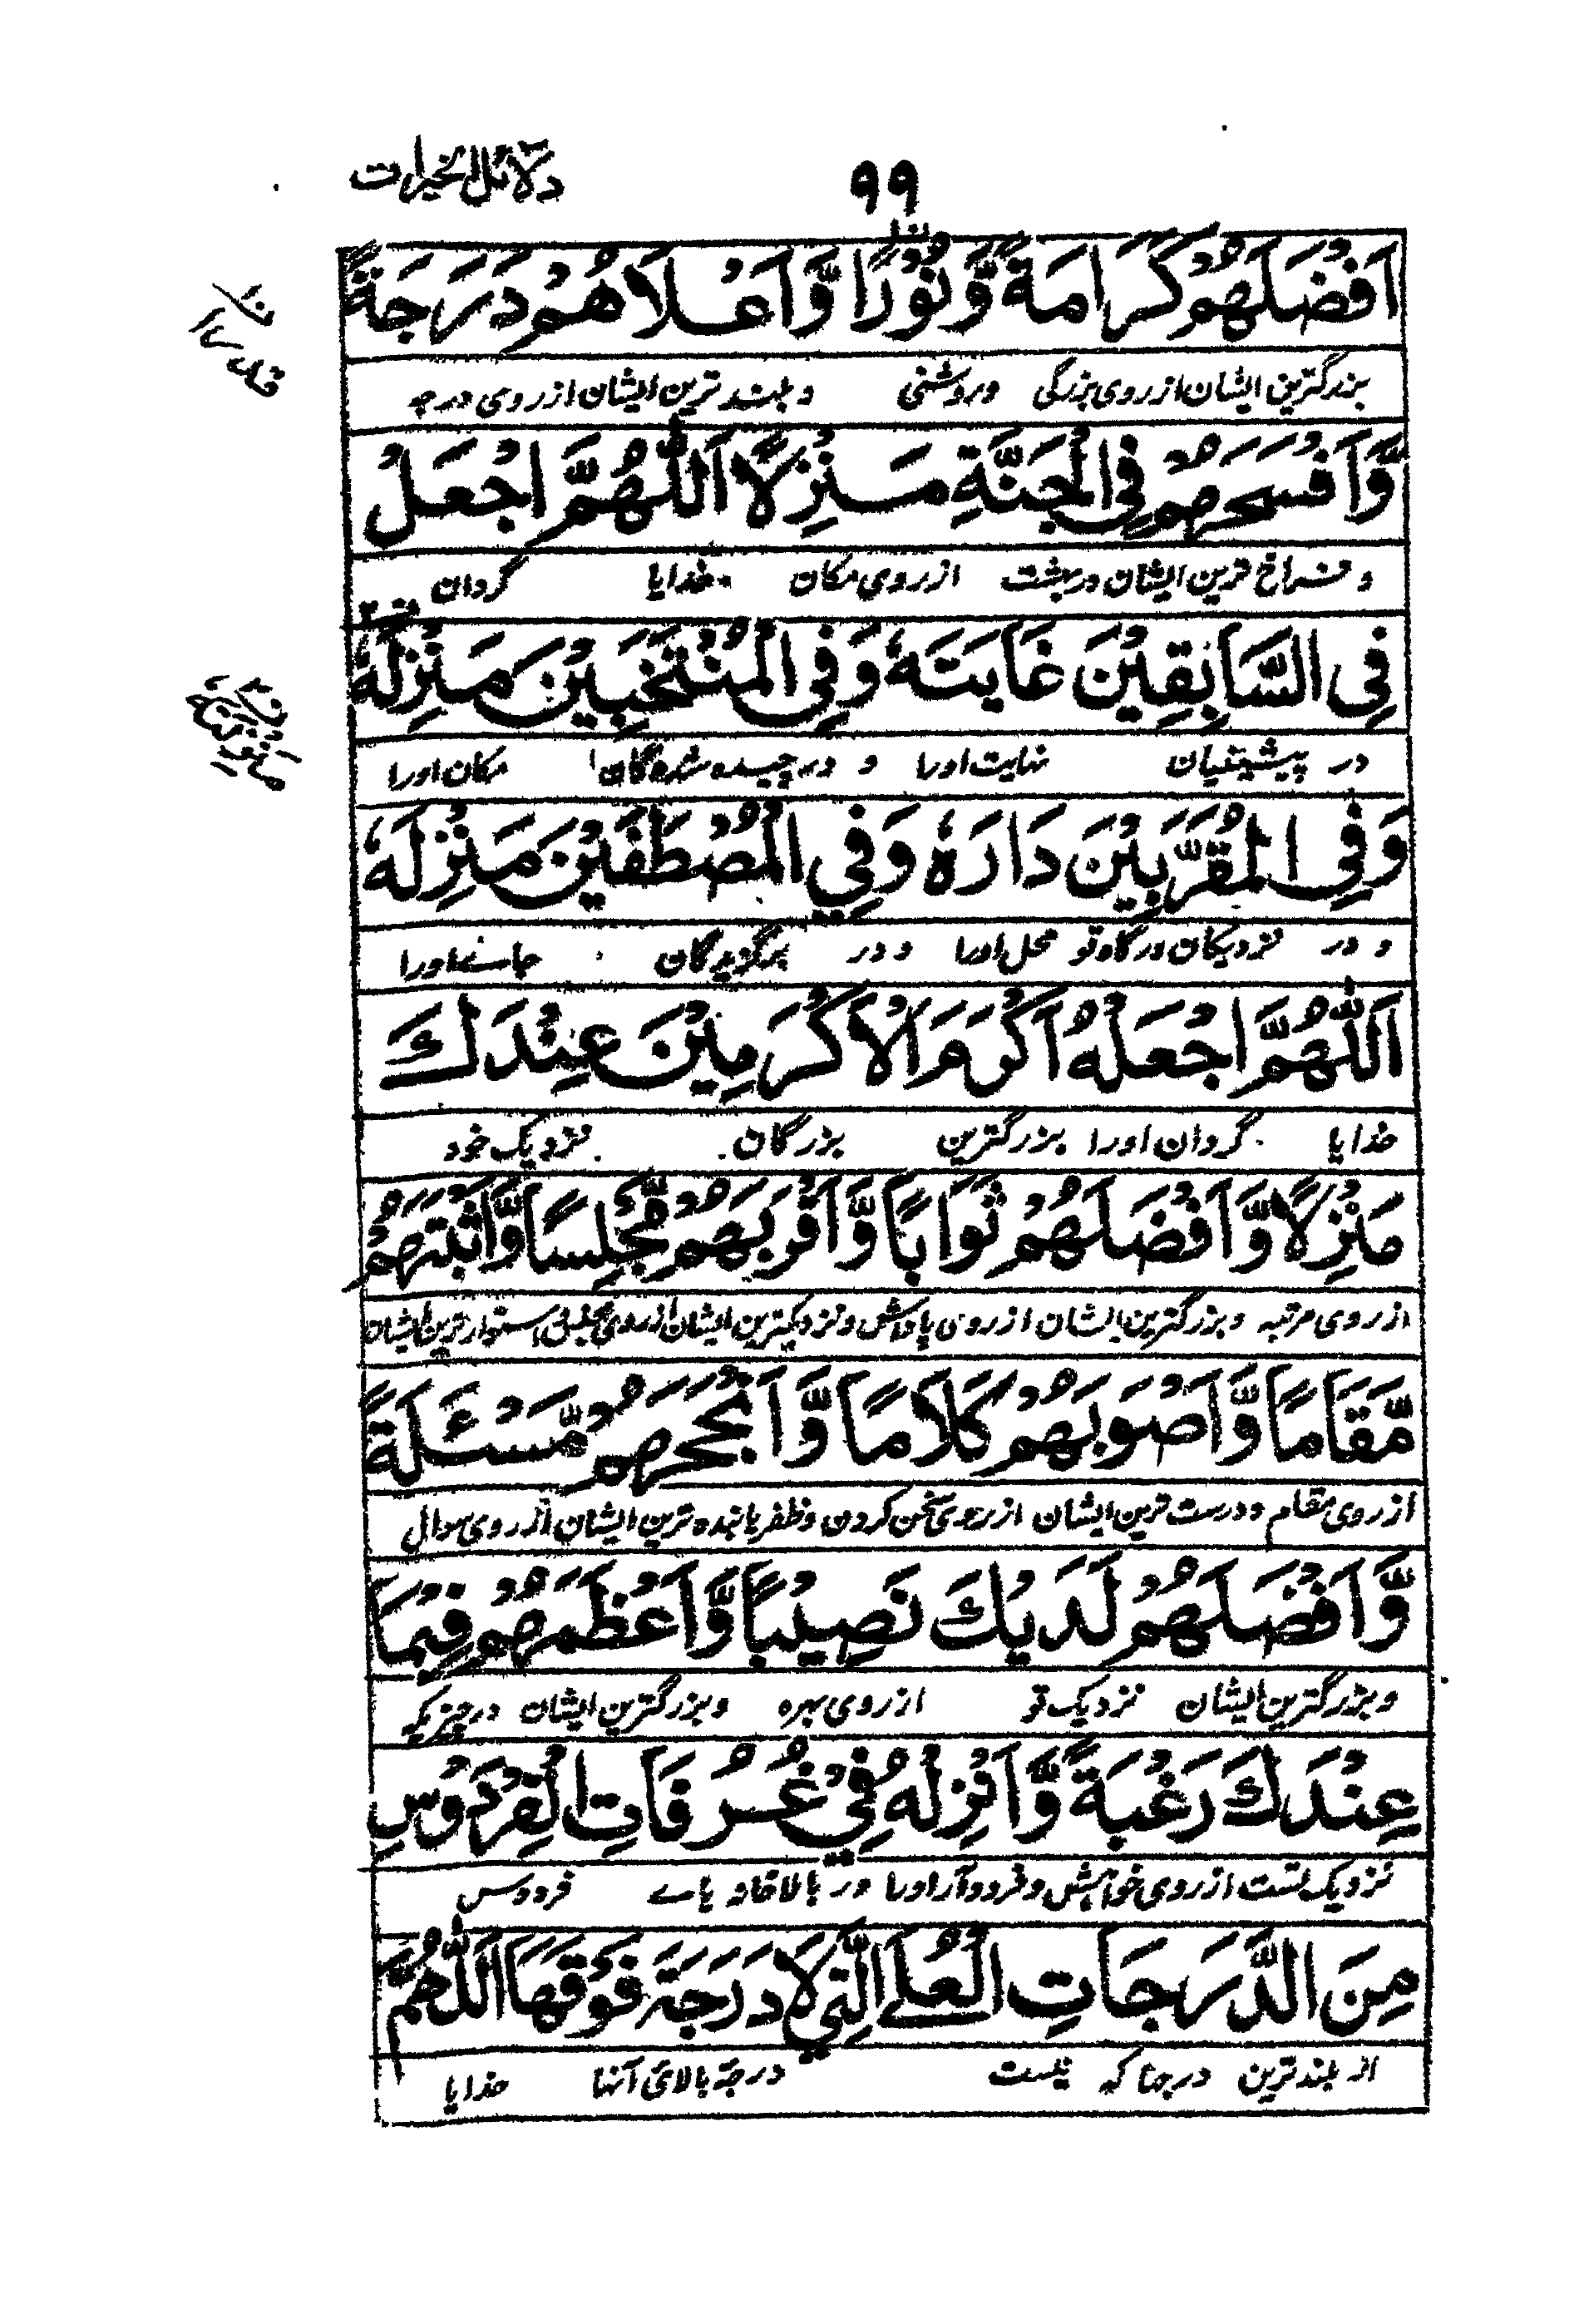 دلائل الخيرات
۹۹
اَفْضَلَهُمْ كَرَامَةً وَّنُوْرًا وَّاَعْلَاهُمْ دَرَجَةً
بزرگترین ایشان از روی بزرگی و روشنی و بلند ترین ایشان از روی درجه
وَّاَفْسَحَهُمْ فِی الْجَنَّةِ مَنْزِلًا اَللّٰهُمَّ اجْعَلْ
و فراخ ترین ایشان در بهشت از روی مکان خدایا گردان
فِی السَّابِقِیْنَ غَایَتَهٗ وَفِی الْمُنْتَخَبِیْنَ مَنْزِلَهٗ
در پیشینیان نهایت اورا و در چیده شده گان مکان اورا
وَفِی الْمُقَرَّبِیْنَ دَارَهٗ وَفِی الْمُصْطَفَیْنَ مَنْزِلَهٗ
و در نزدیکان درگاه تو محل اورا و در برگزیدگان جاے اورا
اَللّٰهُمَّ اجْعَلْهُ اَكْرَمَ الْاَكْرَمِیْنَ عِنْدَكَ
خدایا گردان اورا بزرگترین بزرگان نزدیک خود
مَنْزِلًا وَّاَفْضَلَهُمْ ثَوَابًا وَّاَقْرَبَهُمْ مَّجْلِسًا وَّاَثْبَتَهُمْ
از روی مرتبه و بزرگترین ایشان از روی پاداش و نزدیکترین ایشان از روی مجلس و استوارترین ایشان
مَّقَامًا وَّاَصْوَبَهُمْ كَلَامًا وَّاَنْجَحَهُمْ مَّسْئَلَةً
از روی مقام و درست ترین ایشان از روی سخن کردن و ظفر یابنده ترین ایشان از روی سوال
وَّاَفْضَلَهُمْ لَدَیْكَ نَصِیْبًا وَّاَعْظَمَهُمْ فِیْمَا
و بزرگترین ایشان نزدیک تو از روی بهره و بزرگترین ایشان در چیزیکه
عِنْدَكَ رَغْبَةً وَّاَنْزِلْهُ فِیْ غُرُفَاتِ الْفِرْدَوْسِ
نزدیک تست از روی خواهش و فرود آر اورا در بالا خانه هاے فردوس
مِنَ الدَّرَجَاتِ الْعُلَی الَّتِیْ لَا دَرَجَةَ فَوْقَهَا اَللّٰهُمَّ
از بلند ترین درجها که نیست درجهٔ بالای آنها خدایا